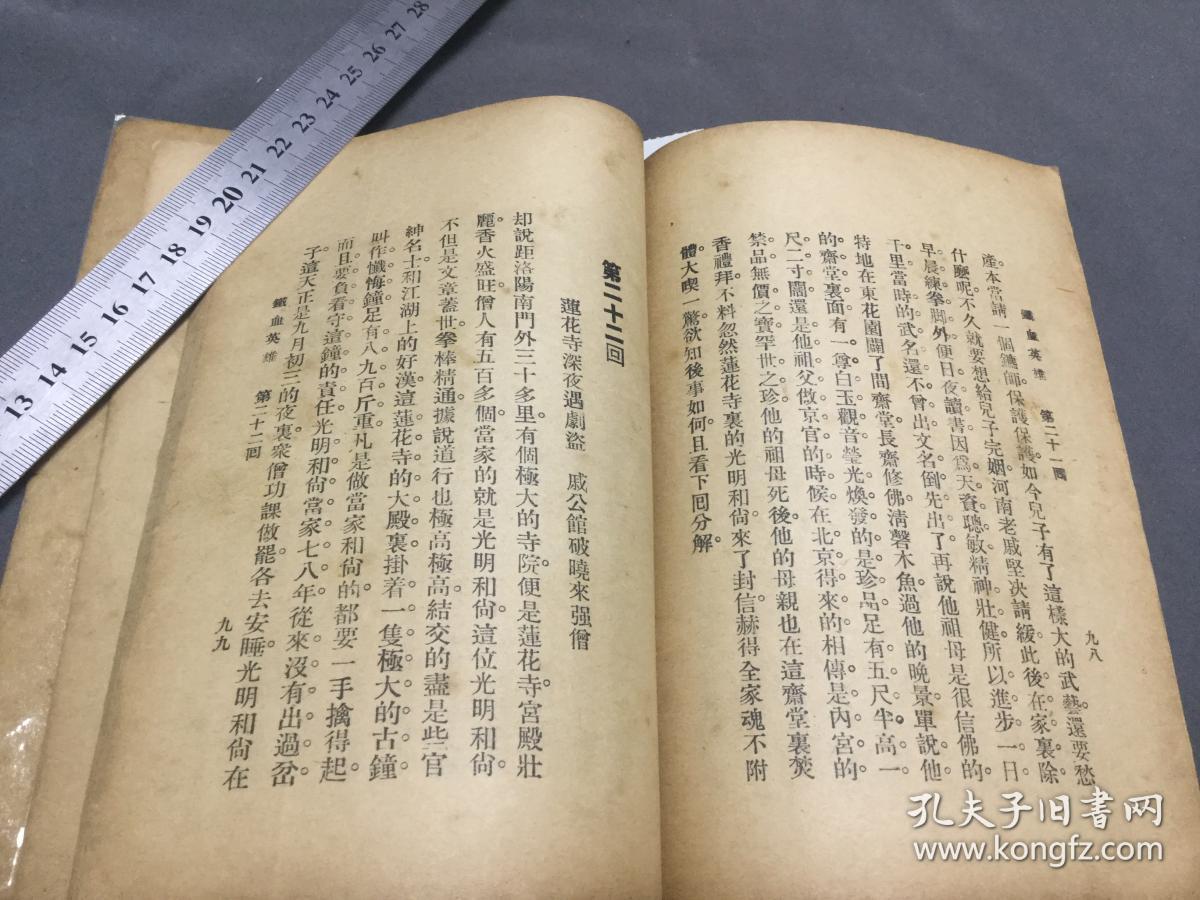 鐵血英雄　第二十一回　九八
產本當請一個鏢師保護保護如今兒子有了這樣大的武藝還要愁
什麼呢不久就要想給兒子完姻河南老戚堅决請緩此後在家裏除
早晨練拳脚外便日夜讀書因爲天資聰敏精神壯健所以進步一日
千里當時的武名還不曾出文名倒先出了再說他祖母是很信佛的
特地在東花園闢了間齋堂長齋修佛淸磬木魚過他的晚景單說他
的齋堂裏面有一尊白玉觀音瑩光煥發的是珍品足有五尺半高一
尺二寸闊還是他祖父做京官的時候在北京得來的相傳是內宮的
禁品無價之寶罕世之珍他的祖母死後他的母親也在這齋堂裏焚
香禮拜不料忽然蓮花寺裏的光明和尙來了封信赫得全家魂不附
體大喫一驚欲知後事如何且看下囘分解。
第二十二回
蓮花寺深夜遇劇盜　戚公館破曉來强僧
却說距洛陽南門外三十多里有個極大的寺院便是蓮花寺宮殿壯
麗香火盛旺僧人有五百多個當家的就是光明和尙這位光明和尙
不但是文章蓋世拳棒精通據說道行也極高極高結交的盡是些官
紳名士和江湖上的好漢這蓮花寺的大殿裏掛着一隻極大的古鐘
叫作懺悔鐘足有八九百斤重凡是做當家和尙的都要一手擒得起
而且要負看守這鐘的責任光明和尙當家七八年從來沒有出過岔
子這天正是九月初三的夜裏衆僧功課做罷各去安睡光明和尙在
鐵血英雄　第二十二回　九九
13 14 15 16 17 18 19 20 21 22 23 24 25 26 27 28
孔夫子旧书网
www.kongfz.com